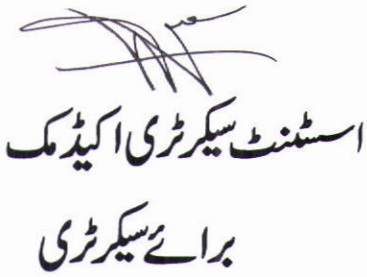 اسسٹنٹ سیکرٹری اکیڈمک
برائے سیکرٹری